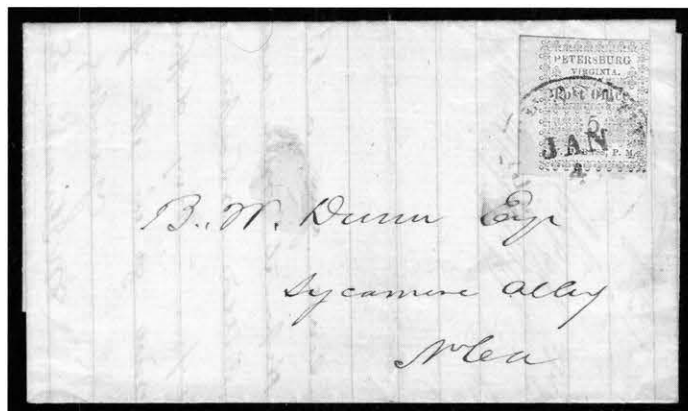 PETERSBURG
VIRGINIA.
Post Office
5
JAN
4
P. M.
B. W. Dunn Esq
Sycamore Alley
No Ca